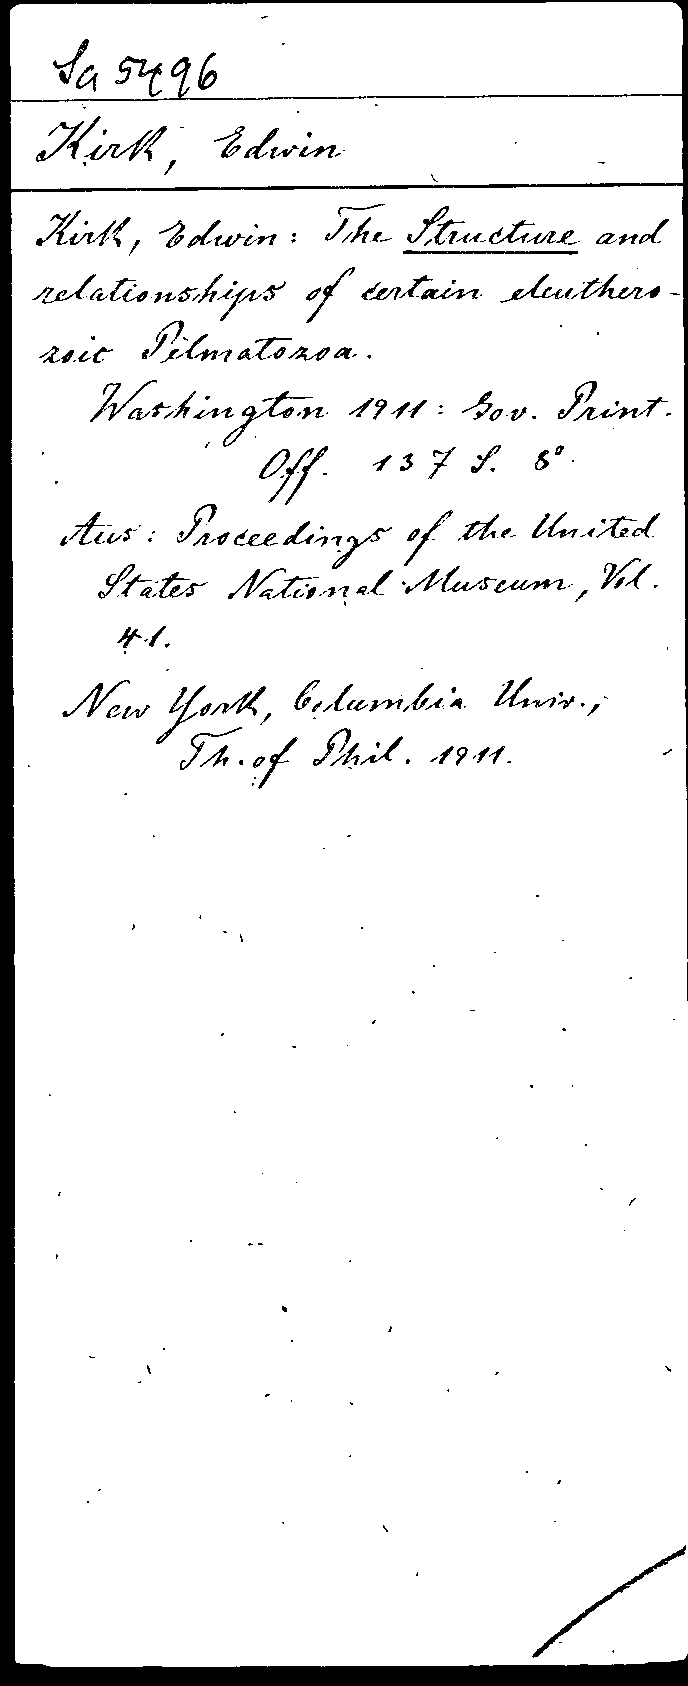 Sa 5496
Kirk, Edwin
Kirk, Edwin: The Structure and
relationships of certain eleuthero-
zoic Pelmatozoa.
Washington 1911: Gov. Print.
Off. 137 S. 8°.
Aus: Proceedings of the United
States National Museum, Vol.
41.
New York, Columbia Univ.,
Th. of Phil. 1911.